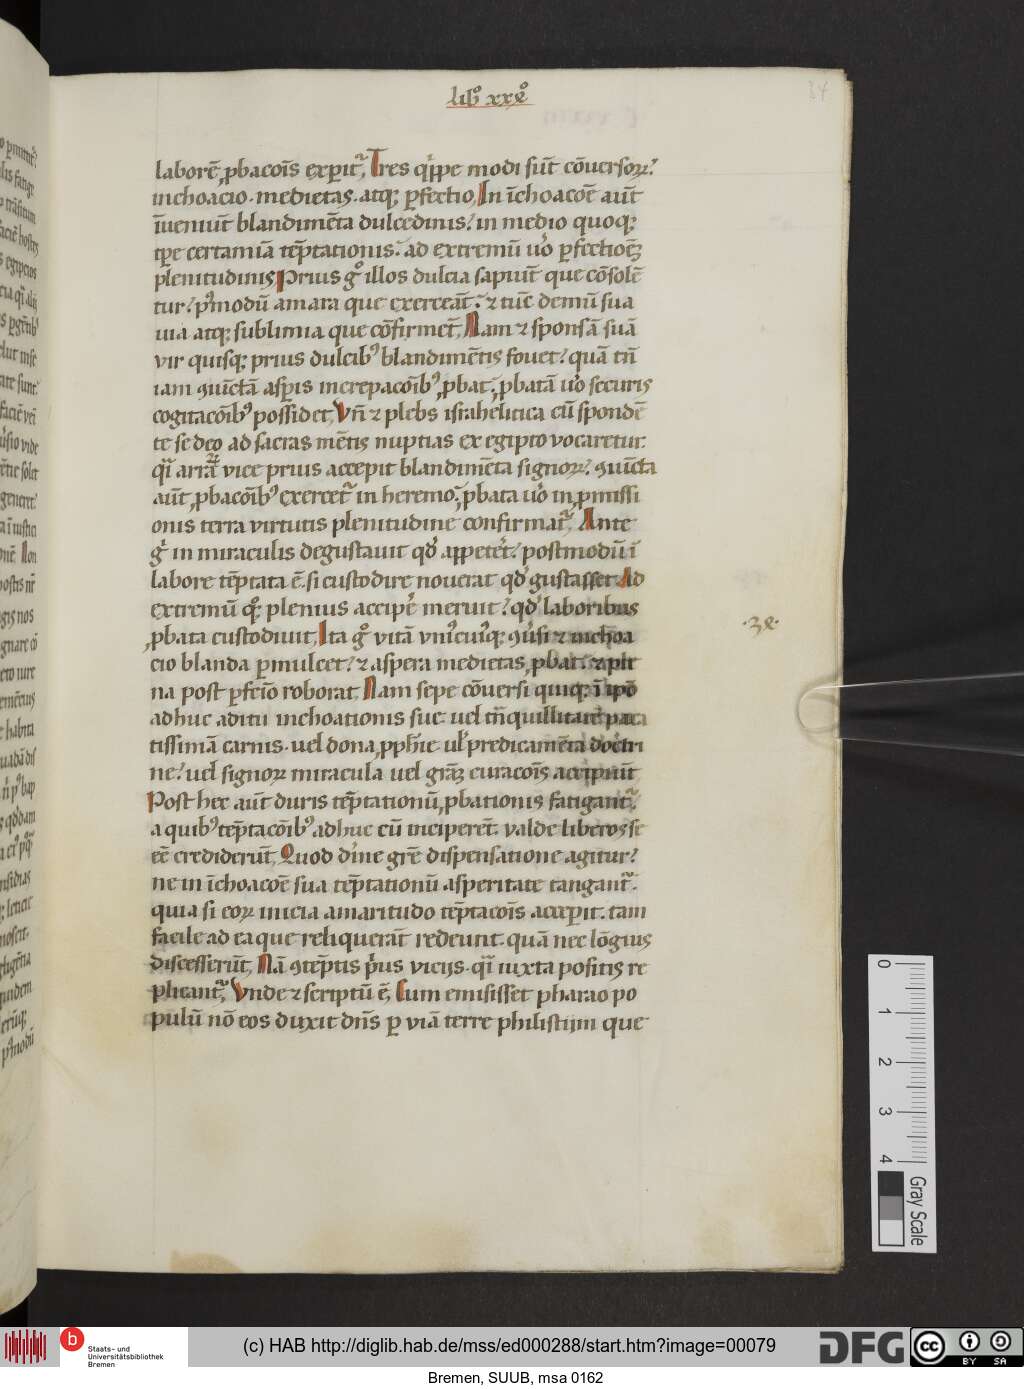 libº xxº
84
laborē ꝓbacoīs exꝑit᷑. Tres qͥppe modi sūt cōuersoꝝ?
inchoacio. medietas. atqꝫ ꝑfectio. In īchoacōe aūt
īueniūt blandimēta dulcedinis? in medio quoqꝫ
tꝑe certamīa tēptationis. ad extremū uͦo ꝑfectiōeꝫ
plenitudinis. Prius gͦ illos dulcia sapiūt que cōsolē
tur? pͦmodū amara que exerceāt? ⁊ tūc demū sua
uia atqꝫ sublimia que cōfirmēt. Nam ⁊ sponsā suā
vir quisqꝫ prius dulcibꝰ blandimētis fouet? quā tn̄
iam ꝯiūctā asꝑis increpacōibꝰ ꝓbat. ꝓbatā uͦo securis
cogitacōibꝰ possidet. Vn̄ ⁊ plebs israhelitica cū spondē
te se deo ad sacras mētis nuptias ex egipto vocaretur.
qͣi arrāꝝ vice prius accepit blandimēta signoꝝ? ꝯiūcta
aūt ꝓbacōibꝰ exercet᷑ in heremo? ꝓbata uͦo in ꝓmissi
onis terra virtutis plenitudine confirmat᷑. Ante
gͦ in miraculis degustauit qd᷑ appetēt? postmodū ī
labore tēptata ē. si custodire nouerat qd᷑ gustasset. Ad
extremū qꝫ plenius acciꝑe meruit? qd᷑ laboribus
ꝓbata custodiuit. Ita gͦ vitā vniꝰcuiꝰqꝫ ꝯuͥsi ⁊ inchoa
cio blanda ꝑmulcet? ⁊ aspera medietas ꝓbat. ⁊ ple
na post ꝑfcīo roborat. Nam sepe cōuersi quiqꝫ ī ipō
adhuc aditu inchoationis sue. uel tn̄quillitatē paca
tissimā carnis. uel dona ꝓpħie ul᷑ predicamēta doctri
ne? uel signoꝝ miracula uel grāꝫ curacoīs accipiūt
Post hec aūt duris tēptationū ꝓbationis fatigant᷑?
a quibꝰ tēptacōibꝰ adhuc cū inciperēt. valde liberos se
eē crediderūt. Quod dīne grē dispensatione agitur?
ne in īchoacōe sua tēptationū asperitate tangant᷑.
quia si eoꝝ inicia amaritudo tēptacoīs acceꝑit. tam
facile ad ea que reliquerāt redeunt. quā nec lōgius
discesserūt. Nā ꝯtēptis pͥus vicijs. qͣi iuxta positis re
plicant᷑. Vnde ⁊ scriptū ē. Cum emisisset pharao po
pulū nō eos duxit dn̄s ꝑ viā terre philistijm que
.3e.
0
1
2
3
4
Gray Scale
b Staats- und
Universitätsbibliothek
Bremen
(c) HAB http://diglib.hab.de/mss/ed000288/start.htm?image=00079
DFG
cc BY SA
Bremen, SUUB, msa 0162